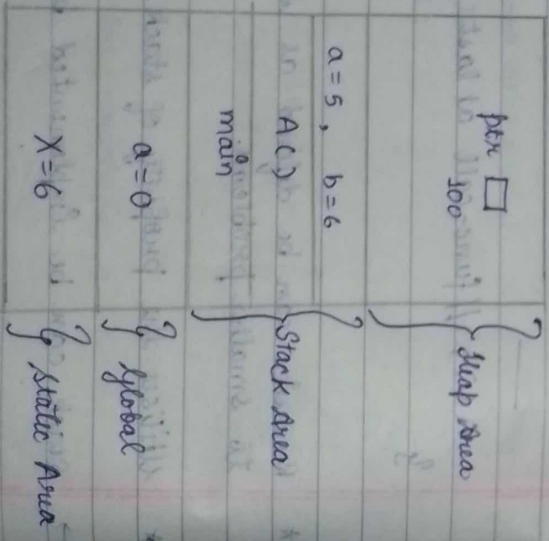 ptr □
100
Heap Area
a = 5, b = 6
A()
main
Stack Area
a = 0
Global
X = 6
Static Area